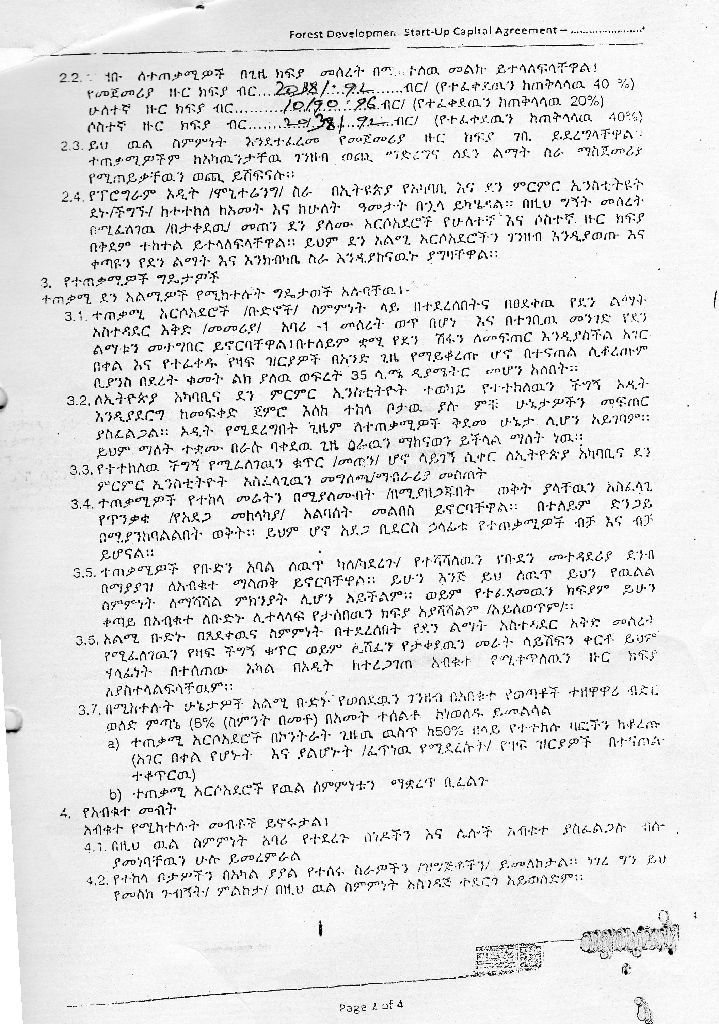 Forest Developmen Start-Up Capital Agreement – ........................
2.2. ለተጠቃሚዎች በጊዜ ክፍያ መሰረት መልኩ ይተላለፍላቸዋል፤
የመጀመሪያ ዙር ክፍያ ብር ብር/ (የተፈቀደዉን ከጠቅላላዉ 40 %)
ሁለተኛ ዙር ክፍያ ብር ብር/ (የተፈቀደዉን ከጠቅላላዉ 20%)
ሶስተኛ ዙር ክፍያ ብር ብር/ (የተፈቀደዉን ከጠቅላላዉ 40%)
2.3. ይህ ዉል ስምምነት እንደተፈረመ የመጀመሪያ ዙር ክፍያ ገቢ ይደረግላቸዋል።
ተጠቃሚዎችም ከአካዉንታቸዉ ገንዘብ ወጪ ማድረግና ለደን ልማት ስራ ማስጀመሪያ
የሚጠይቃቸዉን ወጪ ይሸፍናሉ።
2.4. የፕሮግራም ኦዲት /ሞኒተሪንግ/ ስራ በኢትዮጵያ የአካባቢ እና ደን ምርምር ኢንስቲትዩት
ደኑ/ችግኙ/ ከተተከለ ከአመት እና ከሁለት ዓመታት በኋላ ይካሄዳል። በዚህ ግኝት መሰረት
በሚፈለገዉ /በታቀደዉ/ መጠን ደን ያለሙ አርሶአደሮች የሁለተኛ እና ሶስተኛ ዙር ክፍያ
በቅደም ተከተል ይተላለፍላቸዋል። ይህም ደን አልሚ አርሶአደሮችን ገንዘብ እንዲያወጡ እና
ቀጣዩን የደን ልማት እና እንክብካቤ ስራ እንዲያከናዉኑ ያግዛቸዋል።
3. የተጠቃሚዎች ግዴታዎች
ተጠቃሚ ደን አልሚዎች የሚከተሉት ግዴታዎች አሉባቸዉ፤-
3.1. ተጠቃሚ አርሶአደሮች /ቡድኖች/ ስምምነት ላይ በተደረሰበትና በፀደቀዉ የደን ልማት
አስተዳደር እቅድ /መመሪያ/ አባሪ -1 መሰረት ወጥ በሆነ እና በተገቢዉ መንገድ የደን
ልማቱን መተግበር ይኖርባቸዋል፤በተለይም ቋሚ የደን ሽፋን ለመፍጠር እንዲያስችል አገር
በቀል እና የተፈቀዱ የዛፍ ዝርያዎች በአንድ ጊዜ የማይቆረጡ ሆኖ በተናጠል ሲቆረጡም
ቢያንስ በደረት ቁመት ልክ ያለዉ ወፍረት 35 ሴ.ሜ ዲያሜትር መሆን አለበት።
3.2. ለኢትዮጵያ አካባቢና ደን ምርምር ኢንስቲትዮት ተወካይ የተተከለዉን ችግኝ ኦዲት
እንዲያደርግ ከመፍቀድ ጀምሮ እስከ ተከላ ቦታዉ ያሉ ምቹ ሁኔታዎችን መፍጠር
ያስፈልጋል። ኦዲት የሚደረግበት ጊዜም ለተጠቃሚዎች ቅድመ ሁኔታ ሊሆን አይገባም።
ይህም ማለት ተቋሙ በራሱ ባቀደዉ ጊዜ ስራዉን ማከናወን ይችላል ማለት ነዉ።
3.3. የተተከለዉ ችግኝ የሚፈለገዉን ቁጥር /መጠን/ ሆኖ ሳይገኝ ሲቀር ለኢትዮጵያ አካባቢና ደን
ምርምር ኢንስቲትዮት አስፈላጊዉን መግለጫ/ማብራሪያ መስጠት
3.4. ተጠቃሚዎች የተከላ መሬትን በሚያለሙበት /በሚያዘጋጁበት ወቅት ያላቸዉን አስፈላጊ
የጥንቃቄ /የአደጋ መከላከያ/ አልባሳት መልበስ ይኖርባቸዋል። በተለይም ድንጋይ
በሚያንከባልልበት ወቅት። ይህም ሆኖ አደጋ ቢደርስ ኃላፊቱ የተጠቃሚዎች ብቻ እና ብቻ
ይሆናል።
3.5. ተጠቃሚዎች የቡድን አባል ለዉጥ ካለ/ካደረጉ/ የተሻሻለዉን የቡድን መተዳደሪያ ደንብ
በማያያዝ ለአብቁተ ማሳወቅ ይኖርባቸዋል። ይሁን እንጅ ይህ ለዉጥ ይህን የዉል
ስምምነት ለማሻሻል ምክንያት ሊሆን አይችልም። ወይም የተፈጸመዉን ክፍያም ይሁን
ቀጣይ በአብቁተ ለቡድኑ ሊተላላፍ የታሰበዉን ክፍያ አያሻሽልም /አይለወጥም/።
3.6. አልሚ ቡድኑ በጸደቀዉና ስምምነት በተደረሰበት የደን ልማት አስተዳደር እቅድ መሰረት
የሚፈለገዉን የዛፍ ችግኝ ቁጥር ወይም ሲሸፈን የታቀደዉን መሬት ሳይሸፍን ቀርቶ ይህም
ሃላፊነት በተሰጠዉ አካል በኦዲት ከተረጋገጠ አብቁተ የሚቀጥለዉን ዙር ክፍያ
አያስተላልፍላቸዉም።
3.7. በሚከተሉት ሁኔታዎች አልሚ ቡድኑ የወሰደዉን ገንዘብ በአብቁተ የወጣቶች ተዘዋዋሪ ብድር
ወለድ ምጣኔ (8% (ስምንት በመቶ) በአመት ተሰልቶ ከነወለዱ ይመልሳል
a) ተጠቃሚ አርሶአደሮች በኮንትራት ጊዜዉ ዉስጥ ከ50% በላይ የተተከሉ ዛፎችን ከቆረጡ
(አገር በቀል የሆኑት እና ያልሆኑት /ፈጥነዉ የሚደረሱት/ የዛፍ ዝርያዎች በተናጠል
ተቆጥርዉ)
b) ተጠቃሚ አርሶአደሮች የዉል ስምምነቱን ማቋረጥ ቢፈልጉ
4. የአብቁተ መብት
አብቁተ የሚከተሉት መብቶች ይኖሩታል፤
4.1. በዚህ ዉል ስምምነት አባሪ የተደረጉ ሰነዶችን እና ሌሎች አብቁተ ያስፈልጋሉ ብሎ
ያመነባቸዉን ሁሉ ይመረምራል
4.2. የተከላ ቦታዎችን በአካል ያያል የተሰሩ ስራዎችን /ዝግጅቶችን/ ይመለከታል። ነገረ ግን ይህ
የመስክ ጉብኝት/ ምልከታ/ በዚህ ዉል ስምምነት አስገዳጅ ተደርጎ አይወሰድም።
Page 2 of 4